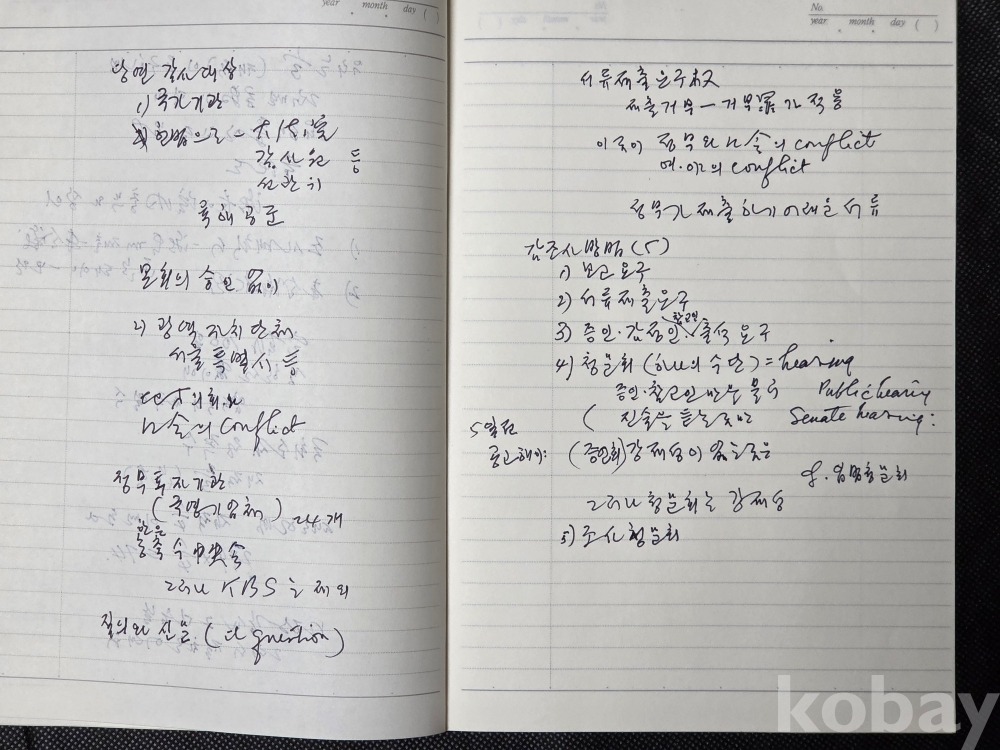 year month day ( )
당연 감사대상
1) 국가기관
헌법으로 - 大法院
감사원 등
선관위
육해공군
본회의 승인 없이
2) 광역 자치 단체
서울특별시 등
의회와
conflict
정부투자기관
(국영기업체) 24개
한은
농축수 中央会
그러나 KBS는 제외
질의와 신문 (question)
No.
year month day ( )
서류제출요구권
제출거부 - 거부 가 적음
이곳이 정부와 conflict
여·야의 conflict
정부가 제출하기 어려운 서류
감조사방법 (5)
1) 보고요구
2) 서류제출요구
3) 증인·감정인·참고인 출석요구
4) 청문회 (하나의 수단) = hearing
증인·참고인 Public hearing
( 진술을 듣는 Senate hearing:
5일전
공고해야: (증언회) 강제성이 없
입법청문회
그러나 청문회는 강제성
5) 조사청문회
kobay